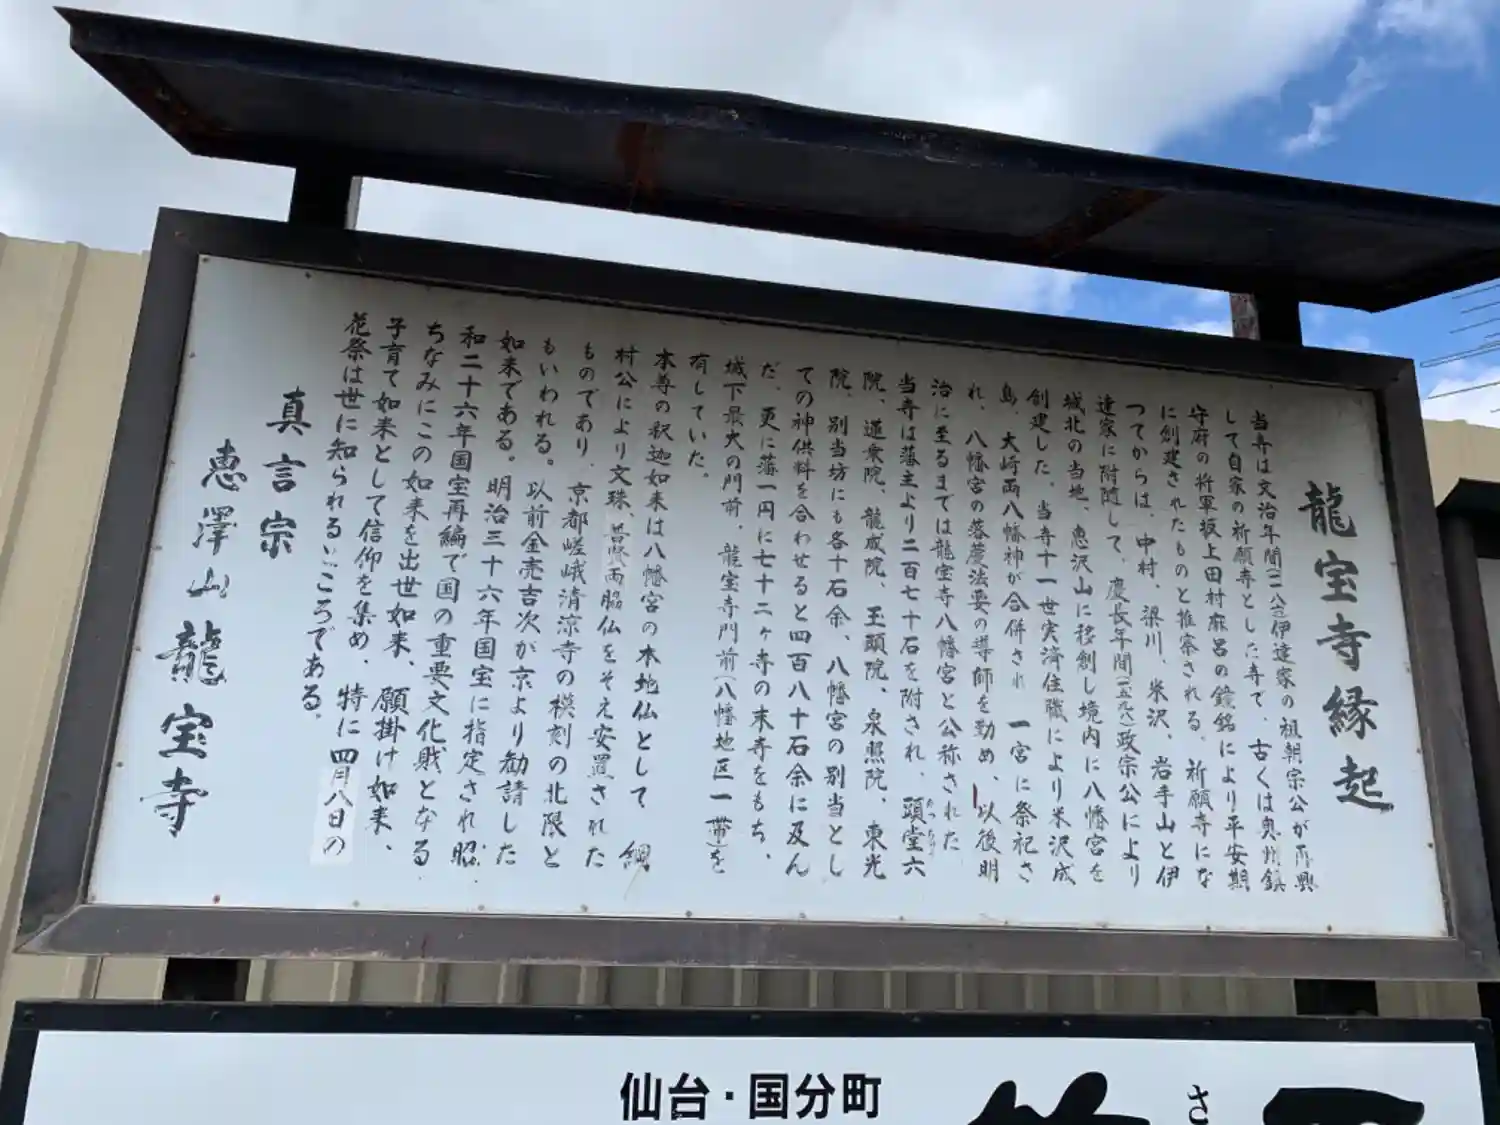 龍宝寺縁起
当寺は文治年間(一一八五)伊達家の祖朝宗公が再興
して自家の祈願寺とした寺で、古くは奥州鎮
守府の将軍坂上田村麻呂の鐘銘により平安期
に創建されたものと推察される。祈願寺にな
つてからは、中村、梁川、米沢、岩手山と伊
達家に附随して、慶長年間(一五九八)政宗公により
城北の当地、恵沢山に移創し境内に八幡宮を
創建した。当寺十一世実済住職により米沢成
島、大崎両八幡神が合併され一宮に祭祀さ
れ、八幡宮の落慶法要の導師を勤め、以後明
治に至るまでは龍宝寺八幡宮と公称された
当寺は藩主より二百七十石を附され、頭堂六
院、道衆院、龍成院、玉頭院、泉照院、東光
院、別当坊にも各十石余、八幡宮の別当とし
ての神供料を合わせると四百八十石余に及ん
だ、更に藩一円に七十二ヶ寺の末寺をもち、
城下最大の門前、龍宝寺門前(八幡地区一帯)を
有していた。
本尊の釈迦如来は八幡宮の本地仏として 綱
村公により文珠、普賢両脇仏をそえ安置された
ものであり、京都嵯峨清涼寺の模刻の北限と
もいわれる。以前金売吉次が京より勧請した
如来である。明治三十六年国宝に指定され、昭
和二十六年国宝再編で国の重要文化財となる
ちなみにこの如来を出世如来、願掛け如来、
子育て如来として信仰を集め、特に四月八日の
花祭は世に知られるところである。
真言宗
恵澤山龍宝寺
仙台・国分町
さ